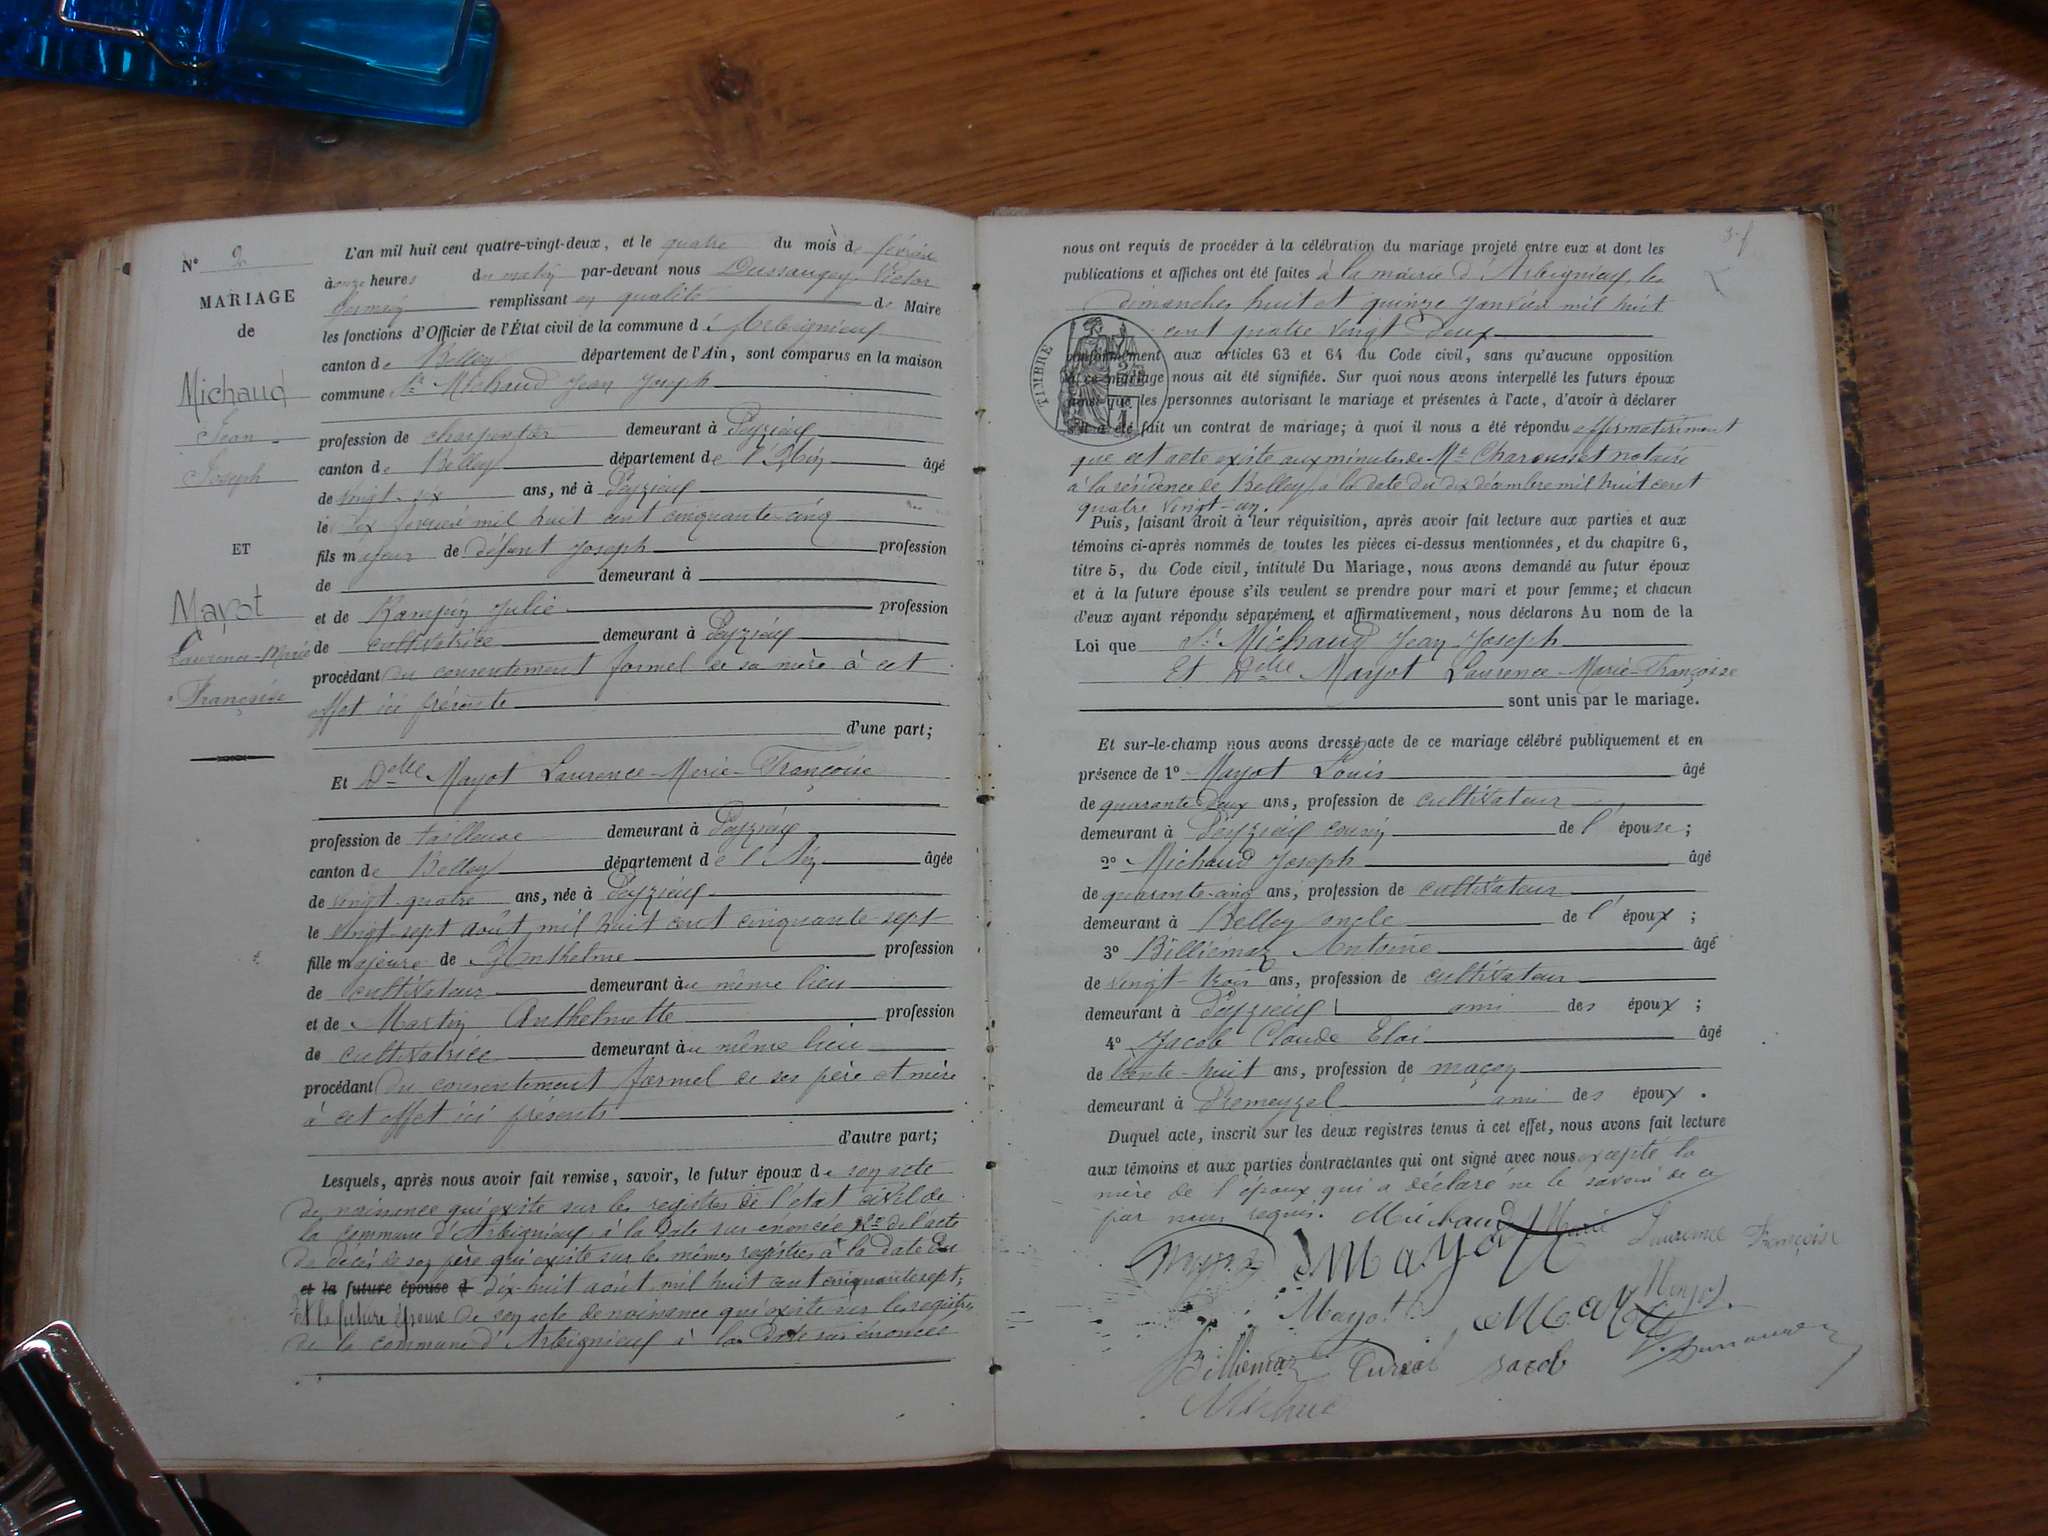 N° 2
MARIAGE
de
Michaud
Jean
Joseph
ET
Mayot
Laurence-Marie
Françoise
L'an mil huit cent quatre-vingt-deux, et le quatre du mois de février
à onze heures du matin par-devant nous Dussaugey Victor
remplissant en qualité de Maire
les fonctions d'Officier de l'État civil de la commune d'Arbignieu
canton de Belley département de l'Ain, sont comparus en la maison
commune Sr Michaud Jean Joseph
profession de charpentier demeurant à Peyzieu
canton de Belley département de l'Ain âgé
de vingt-six ans, né à Peyzieu
le dix février mil huit cent cinquante-cinq
fils majeur de défunt Joseph profession
de demeurant à
et de Rampin Julie profession
de cultivatrice demeurant à Peyzieu
procédant du consentement formel de sa mère à cet
effet ici présente
d'une part;
Et Delle Mayot Laurence-Marie-Françoise
profession de tailleuse demeurant à Peyzieu
canton de Belley département de l'Ain âgée
de vingt-quatre ans, née à Peyzieu
le vingt-sept août mil huit cent cinquante-sept
fille majeure de Anthelme profession
de cultivateur demeurant au même lieu
et de Martin Anthelmette profession
de cultivatrice demeurant au même lieu
procédant du consentement formel de ses père et mère
à cet effet ici présents
d'autre part;
Lesquels, après nous avoir fait remise, savoir, le futur époux de son acte
de naissance qui existe sur les registres de l'état civil de
la commune d'Arbignieu à la date sus énoncée, de l'acte
de décès de son père qui existe sur les mêmes registres à la date du
et la future épouse d dix-huit août mil huit cent cinquante sept;
et la future épouse de son acte de naissance qui existe sur les registres
de la commune d'Arbignieu à la date sus énoncée
3 f
nous ont requis de procéder à la célébration du mariage projeté entre eux et dont les
publications et affiches ont été faites à la mairie d'Arbignieu, les
dimanches huit et quinze janvier mil huit
cent quatre vingt deux
TIMBRE
conformément aux articles 63 et 64 du Code civil, sans qu'aucune opposition
à ce mariage nous ait été signifiée. Sur quoi nous avons interpellé les futurs époux
ainsi que les personnes autorisant le mariage et présentes à l'acte, d'avoir à déclarer
s'il a été fait un contrat de mariage; à quoi il nous a été répondu affirmativement
que cet acte existe aux minutes de Me Charousset notaire
à la résidence de Belley, à la date du dix décembre mil huit cent
quatre vingt-un.
Puis, faisant droit à leur réquisition, après avoir fait lecture aux parties et aux
témoins ci-après nommés de toutes les pièces ci-dessus mentionnées, et du chapitre 6,
titre 5, du Code civil, intitulé Du Mariage, nous avons demandé au futur époux
et à la future épouse s'ils veulent se prendre pour mari et pour femme; et chacun
d'eux ayant répondu séparément et affirmativement, nous déclarons Au nom de la
Loi que Sr Michaud Jean Joseph
Et Delle Mayot Laurence-Marie-Françoise
sont unis par le mariage.
Et sur-le-champ nous avons dressé acte de ce mariage célébré publiquement et en
présence de 1° Mayot Louis âgé
de quarante-deux ans, profession de cultivateur
demeurant à Peyzieu cousin de l'épouse;
2° Michaud Joseph âgé
de quarante-cinq ans, profession de cultivateur
demeurant à Belley oncle de l'époux;
3° Billiemaz Antoine âgé
de vingt-trois ans, profession de cultivateur
demeurant à Peyzieu ami des époux;
4° Jacob Claude Eloi âgé
de trente-huit ans, profession de maçon
demeurant à Premeyzel ami des époux.
Duquel acte, inscrit sur les deux registres tenus à cet effet, nous avons fait lecture
aux témoins et aux parties contractantes qui ont signé avec nous excepté la
mère de l'époux qui a déclaré ne le savoir de ce
par nous requis. Michaud Marie Laurence Françoise
Mayot
Mayot Mayot Mayot
Billiemaz Jacob V. Dussaugey
Michaud